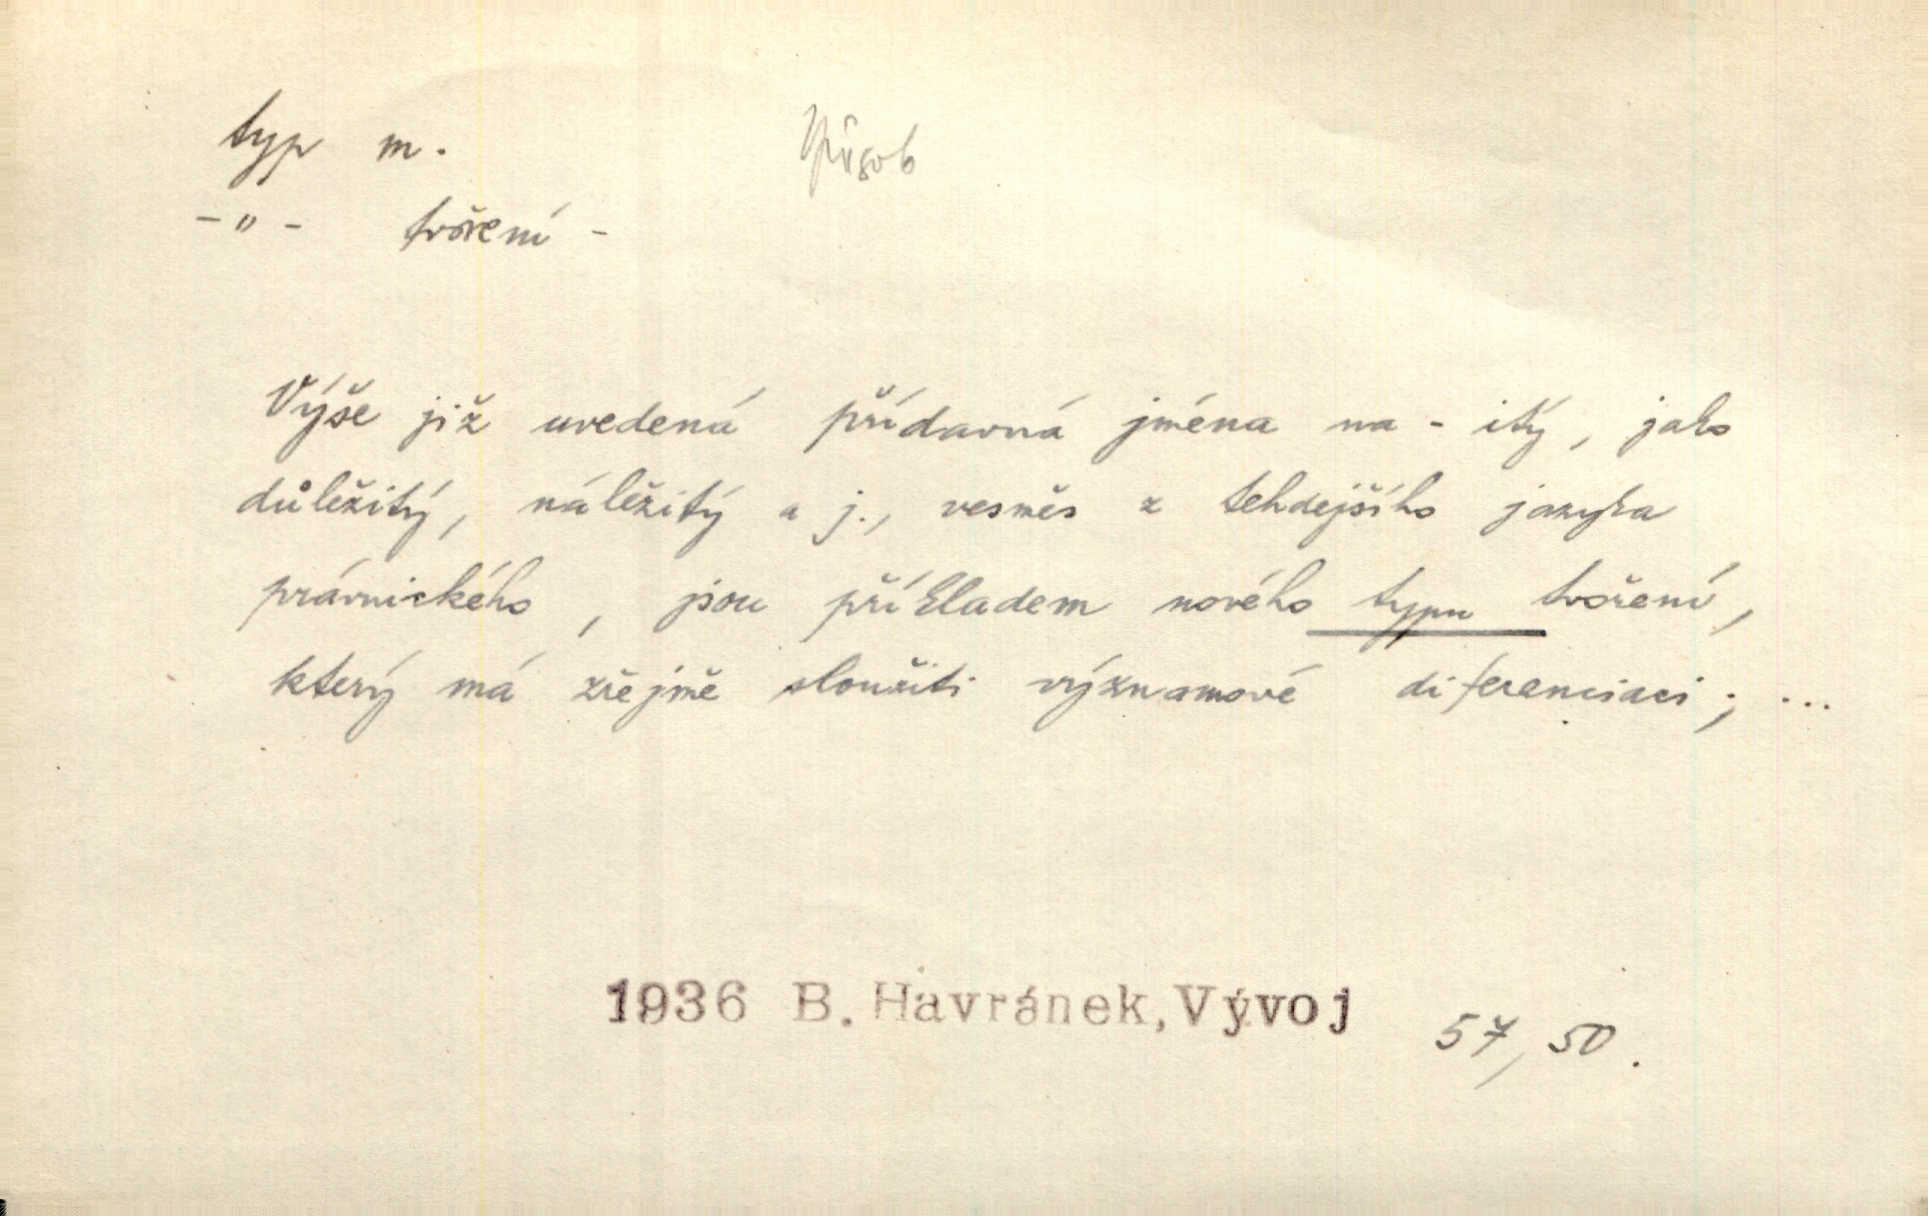 typ m. způsob
-"- tvoření -
Výše již uvedená přídavná jména na -itý, jako
důležitý, náležitý a j., vesměs z tehdejšího jazyka
právnického, jsou příkladem nového typu tvoření,
který má zřejmě sloužiti významové diferenciaci; ...
1936 B. Havránek, Vývoj 57, 50.